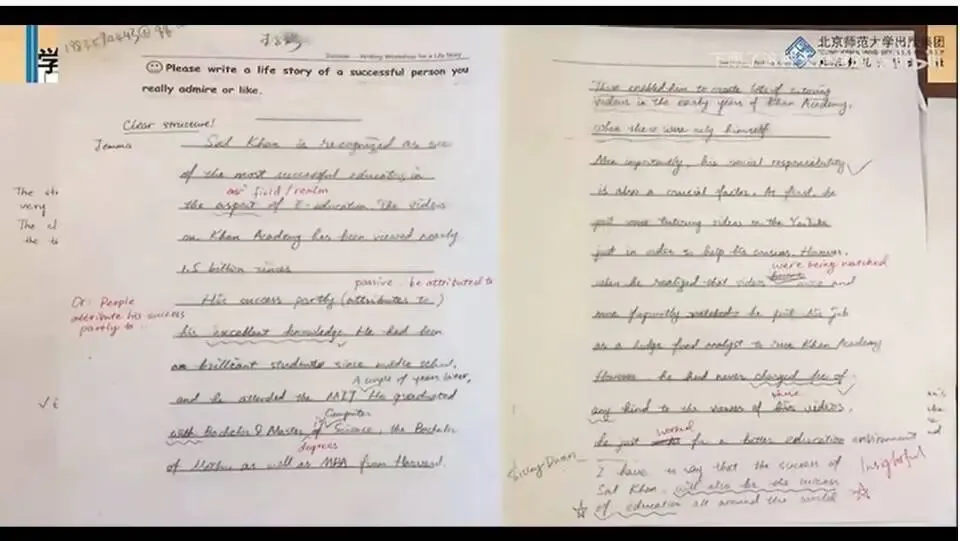 学
Success - Writing Workshop for a Life Story
Please write a life story of a successful person you
really admire or like.
Clear structure!
Jemma
Sal Khan is recognized as one
of the most successful educators in
field / realm
the aspect of E-education. The videos
on Khan Academy has been viewed nearly
1.5 billion times
passive: be attributed to
Or: People
attribute his success
partly to
His success partly (attributes to)
his excellent knowledge. He had been
an brilliant students since middle school,
A couple of years later,
and he attended the MIT. He graduated
Computer
with Bachelor & Master of Science, the Bachelor
degrees
of Maths as well as MBA from Harvard.
The
very
The
the
北京师范大学出版集团
This enabled him to create lots of tutoring
videos in the early years of Khan Academy,
when there were only himself
More importantly, his social responsibility
is also a crucial factor. At first, he
put some tutoring videos on the YouTube
just in order to help his cousins. However,
were being watched
when he realized that videos were and
more frequently watched he put his job
as a hedge fund analyst to run Khan Academy
However, he had never charged fee of
any kind to the viewers of his videos.
he just worked for a better education environment
I have to say that the success of
Sal Khan will also be the success
of education all around the world
Insightful